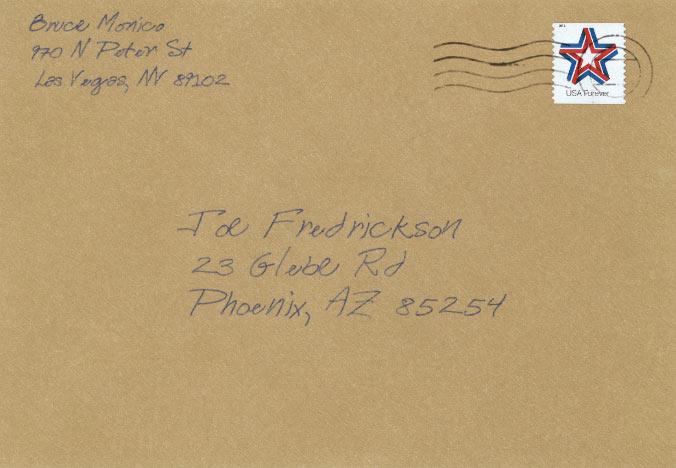 Bruce Monico
970 N Peter St
Las Vegas, NV 89102
USA Forever
Joe Fredrickson
23 Glebe Rd
Phoenix, AZ 85254